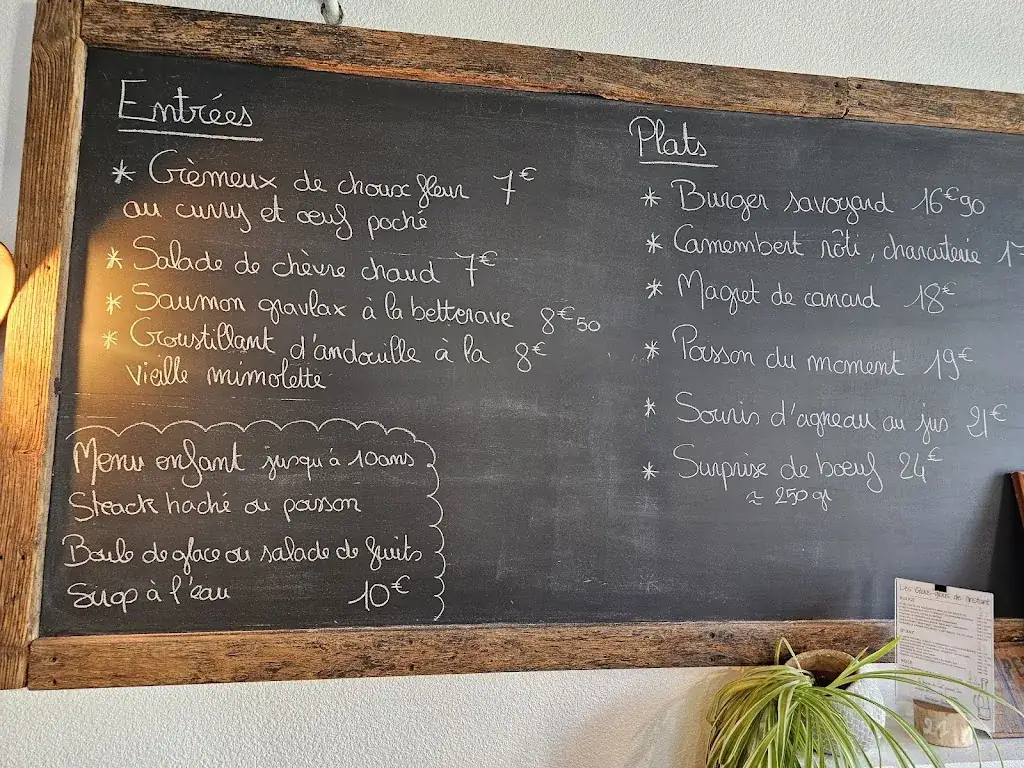 Entrées
* Crèmeux de choux fleur 7€
au curry et œuf poché
* Salade de chèvre chaud 7€
* Saumon gravlax à la betterave 8€50
* Croustillant d'andouille à la 8€
vieille mimolette
Menu enfant jusqu'à 10ans
Steack haché ou poisson
Boule de glace ou salade de fruits
Sirop à l'eau 10€
Plats
* Burger savoyard 16€90
* Camembert rôti, charcuterie 17
* Magret de canard 18€
* Poisson du moment 19€
* Souris d'agneau au jus 21€
* Surprise de boeuf 24€
≈ 250 gr
21